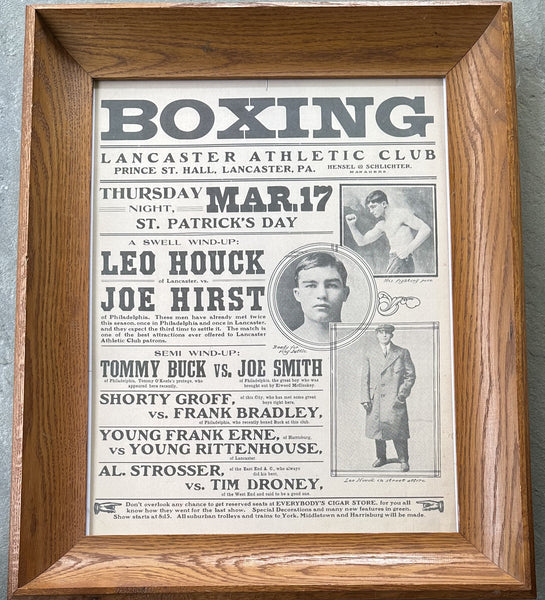 BOXING
LANCASTER ATHLETIC CLUB
PRINCE ST. HALL, LANCASTER, PA. HENSEL & SCHLICHTER,
MANAGERS.
THURSDAY NIGHT, MAR. 17
ST. PATRICK'S DAY
His fighting pose
A SWELL WIND-UP:
LEO HOUCK
of Lancaster, vs.
JOE HIRST
of Philadelphia. These men have already met twice
this season, once in Philadelphia and once in Lancaster,
and they expect the third time to settle it. The match is
one of the best attractions ever offered to Lancaster
Athletic Club patrons.
Ready for
ring battle.
SEMI WIND-UP:
TOMMY BUCK vs. JOE SMITH
of Philadelphia, Tommy O'Keefe's protege, who
appeared here recently,
of Philadelphia, the great boy who was
brought out by Elwood McCloskey.
SHORTY GROFF, of this city, who has met some great
boys right here,
vs. FRANK BRADLEY,
of Philadelphia, who recently boxed Buck at this club.
YOUNG FRANK ERNE, of Harrisburg,
vs YOUNG RITTENHOUSE,
of Lancaster.
AL. STROSSER, of the East End A. C., who always
did his best,
vs. TIM DRONEY,
of the West End and said to be a good one.
Leo Houck in street attire.
Don't overlook any chance to get reserved seats at EVERYBODY'S CIGAR STORE, for you all
know how they went for the last show. Special Decorations and many new features in green.
Show starts at 8:15. All suburban trolleys and trains to York, Middletown and Harrisburg will be made.